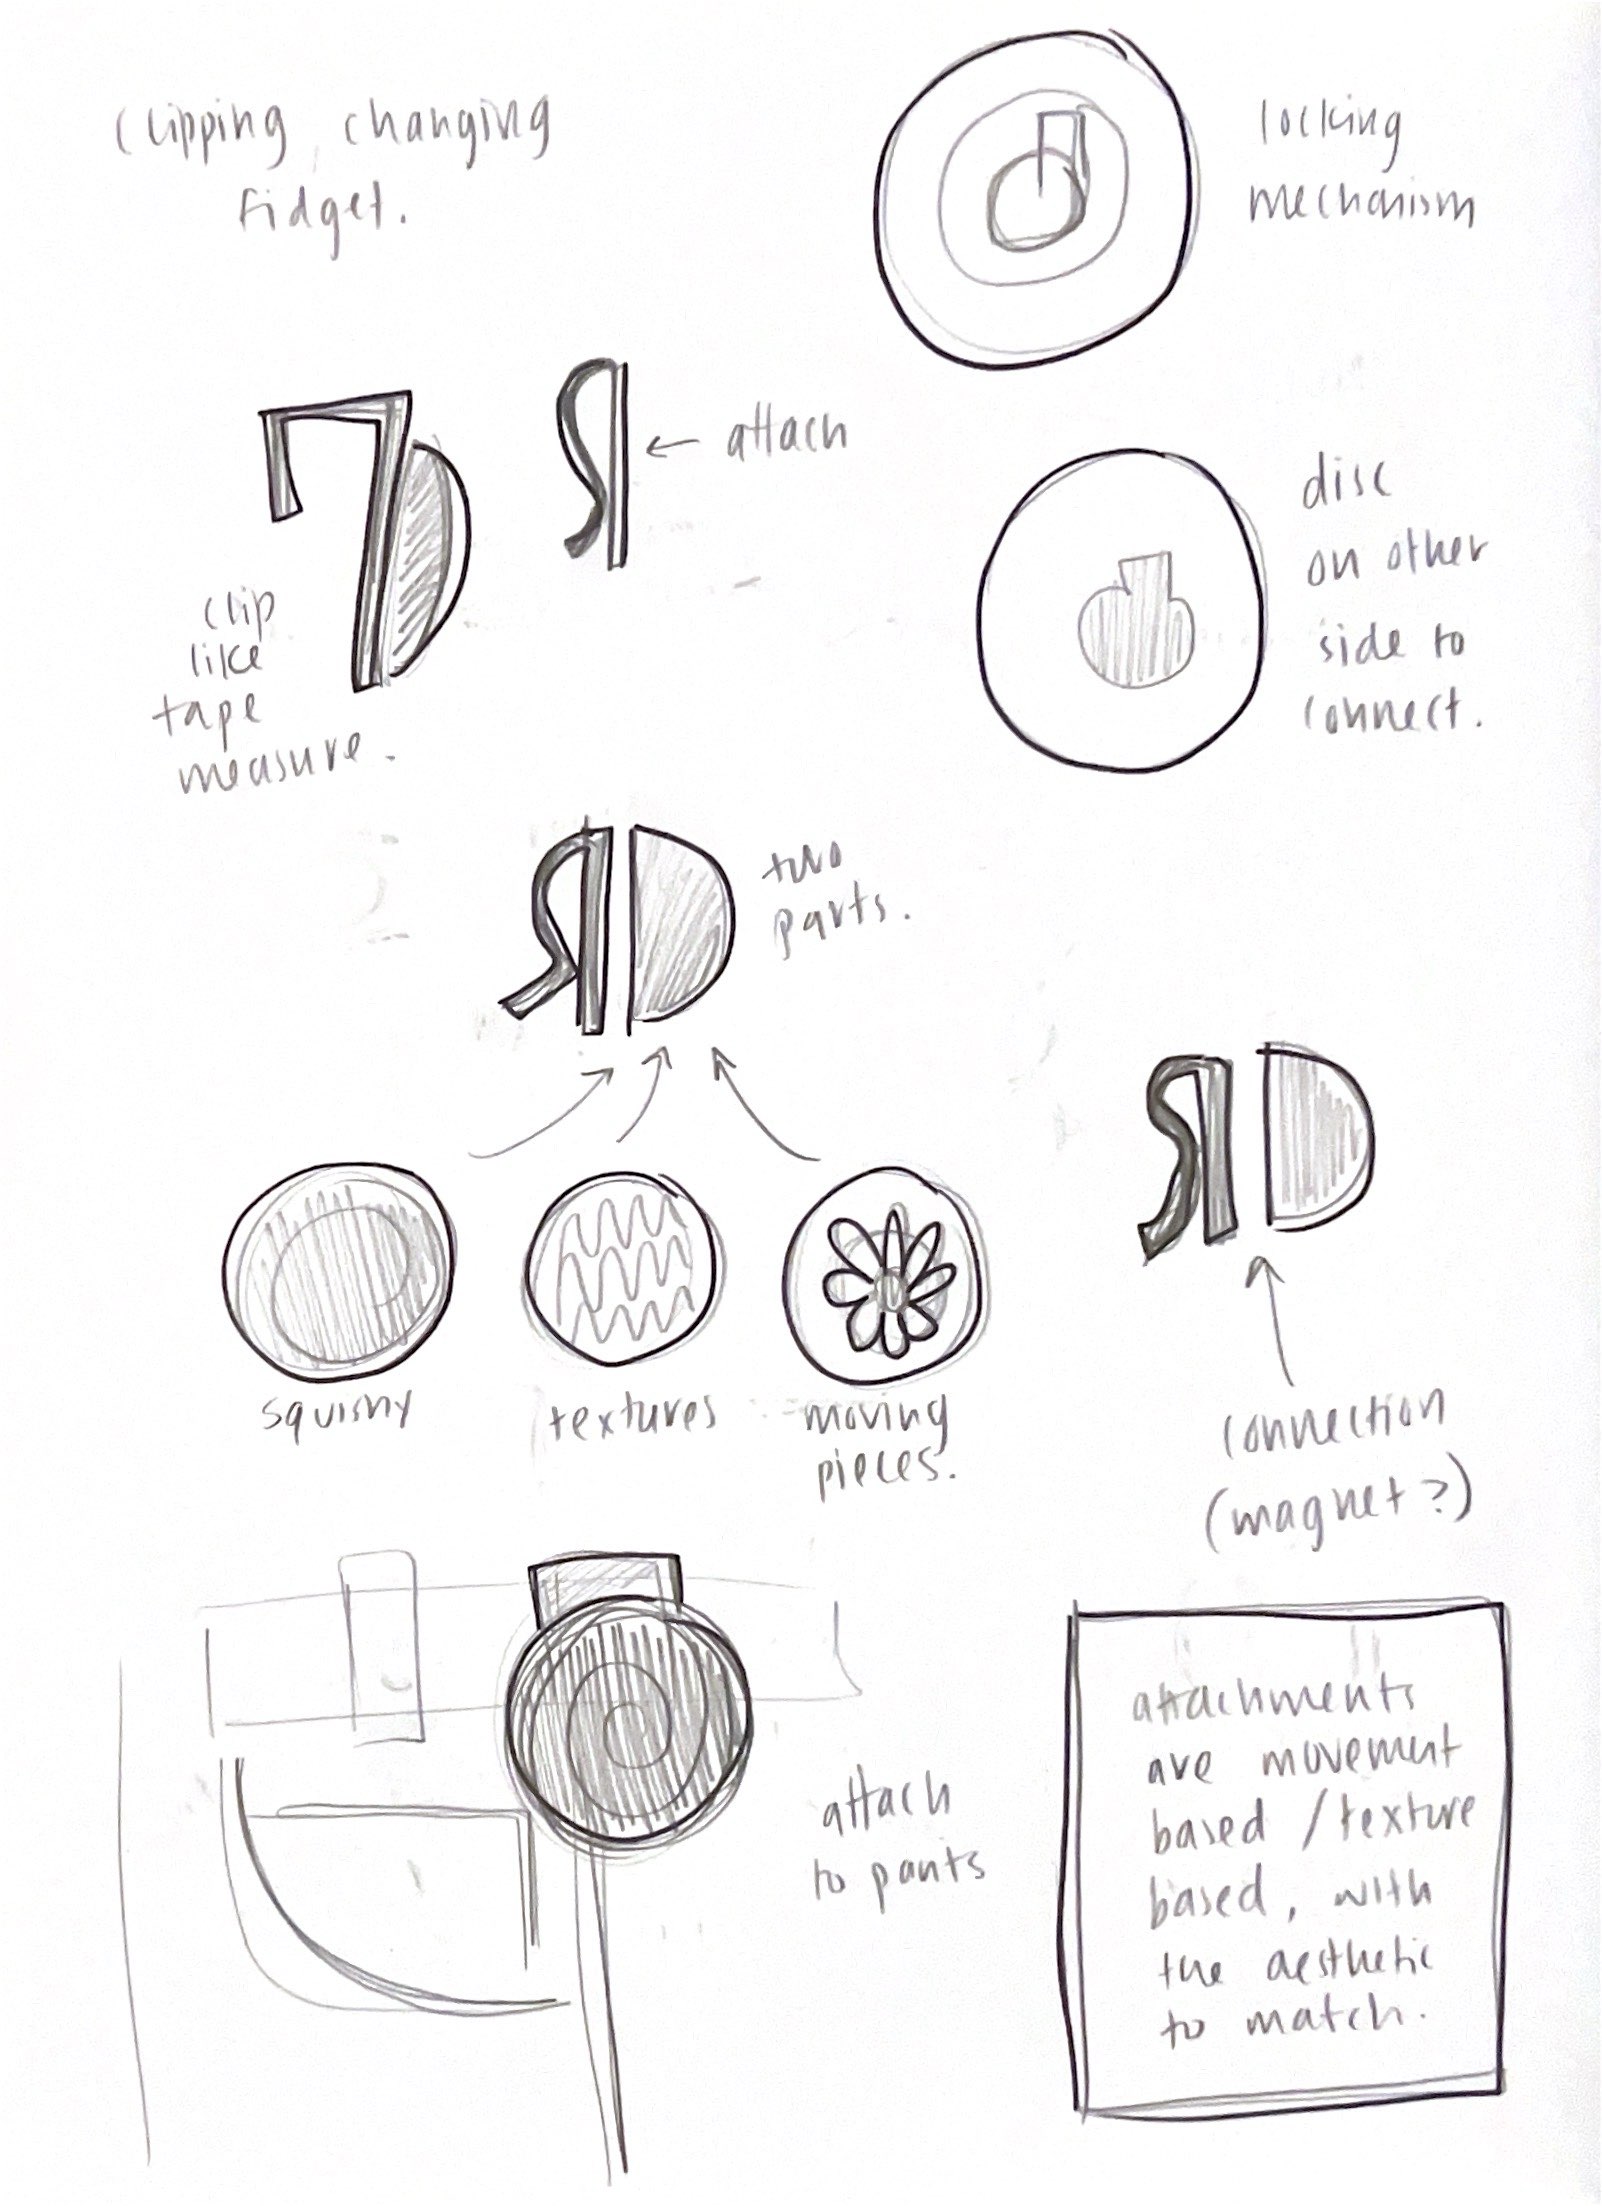 clipping, changing
fidget.
locking
mechanism
← attach
clip
like
tape
measure.
disc
on other
side to
connect.
two
parts.
squishy
textures
moving
pieces.
connection
(magnet?)
attach
to pants
attachments
are movement
based / texture
based, with
the aesthetic
to match.